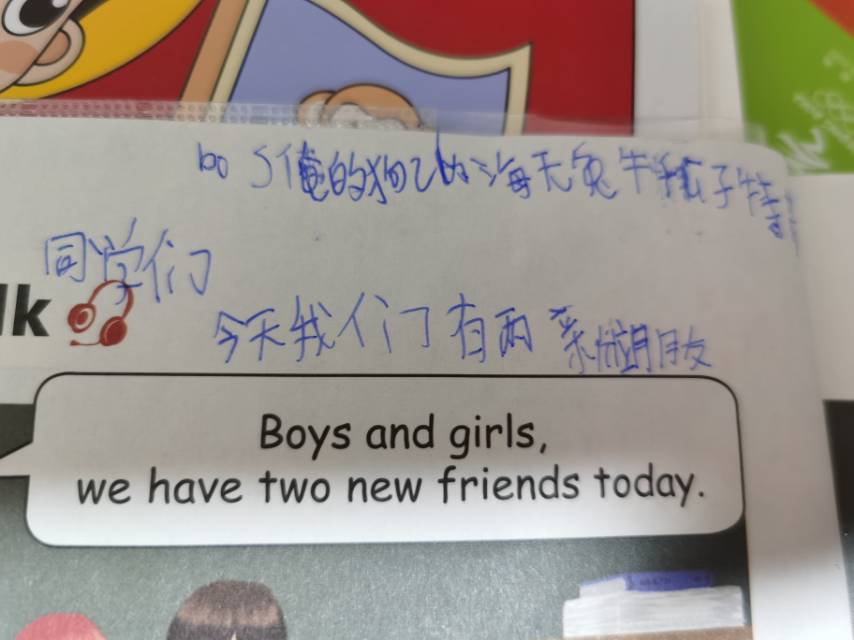 bo S俺的狗乙 海无兔牛 子特
同学们
lk
今天我们有两 朋友
Boys and girls,
we have two new friends today.